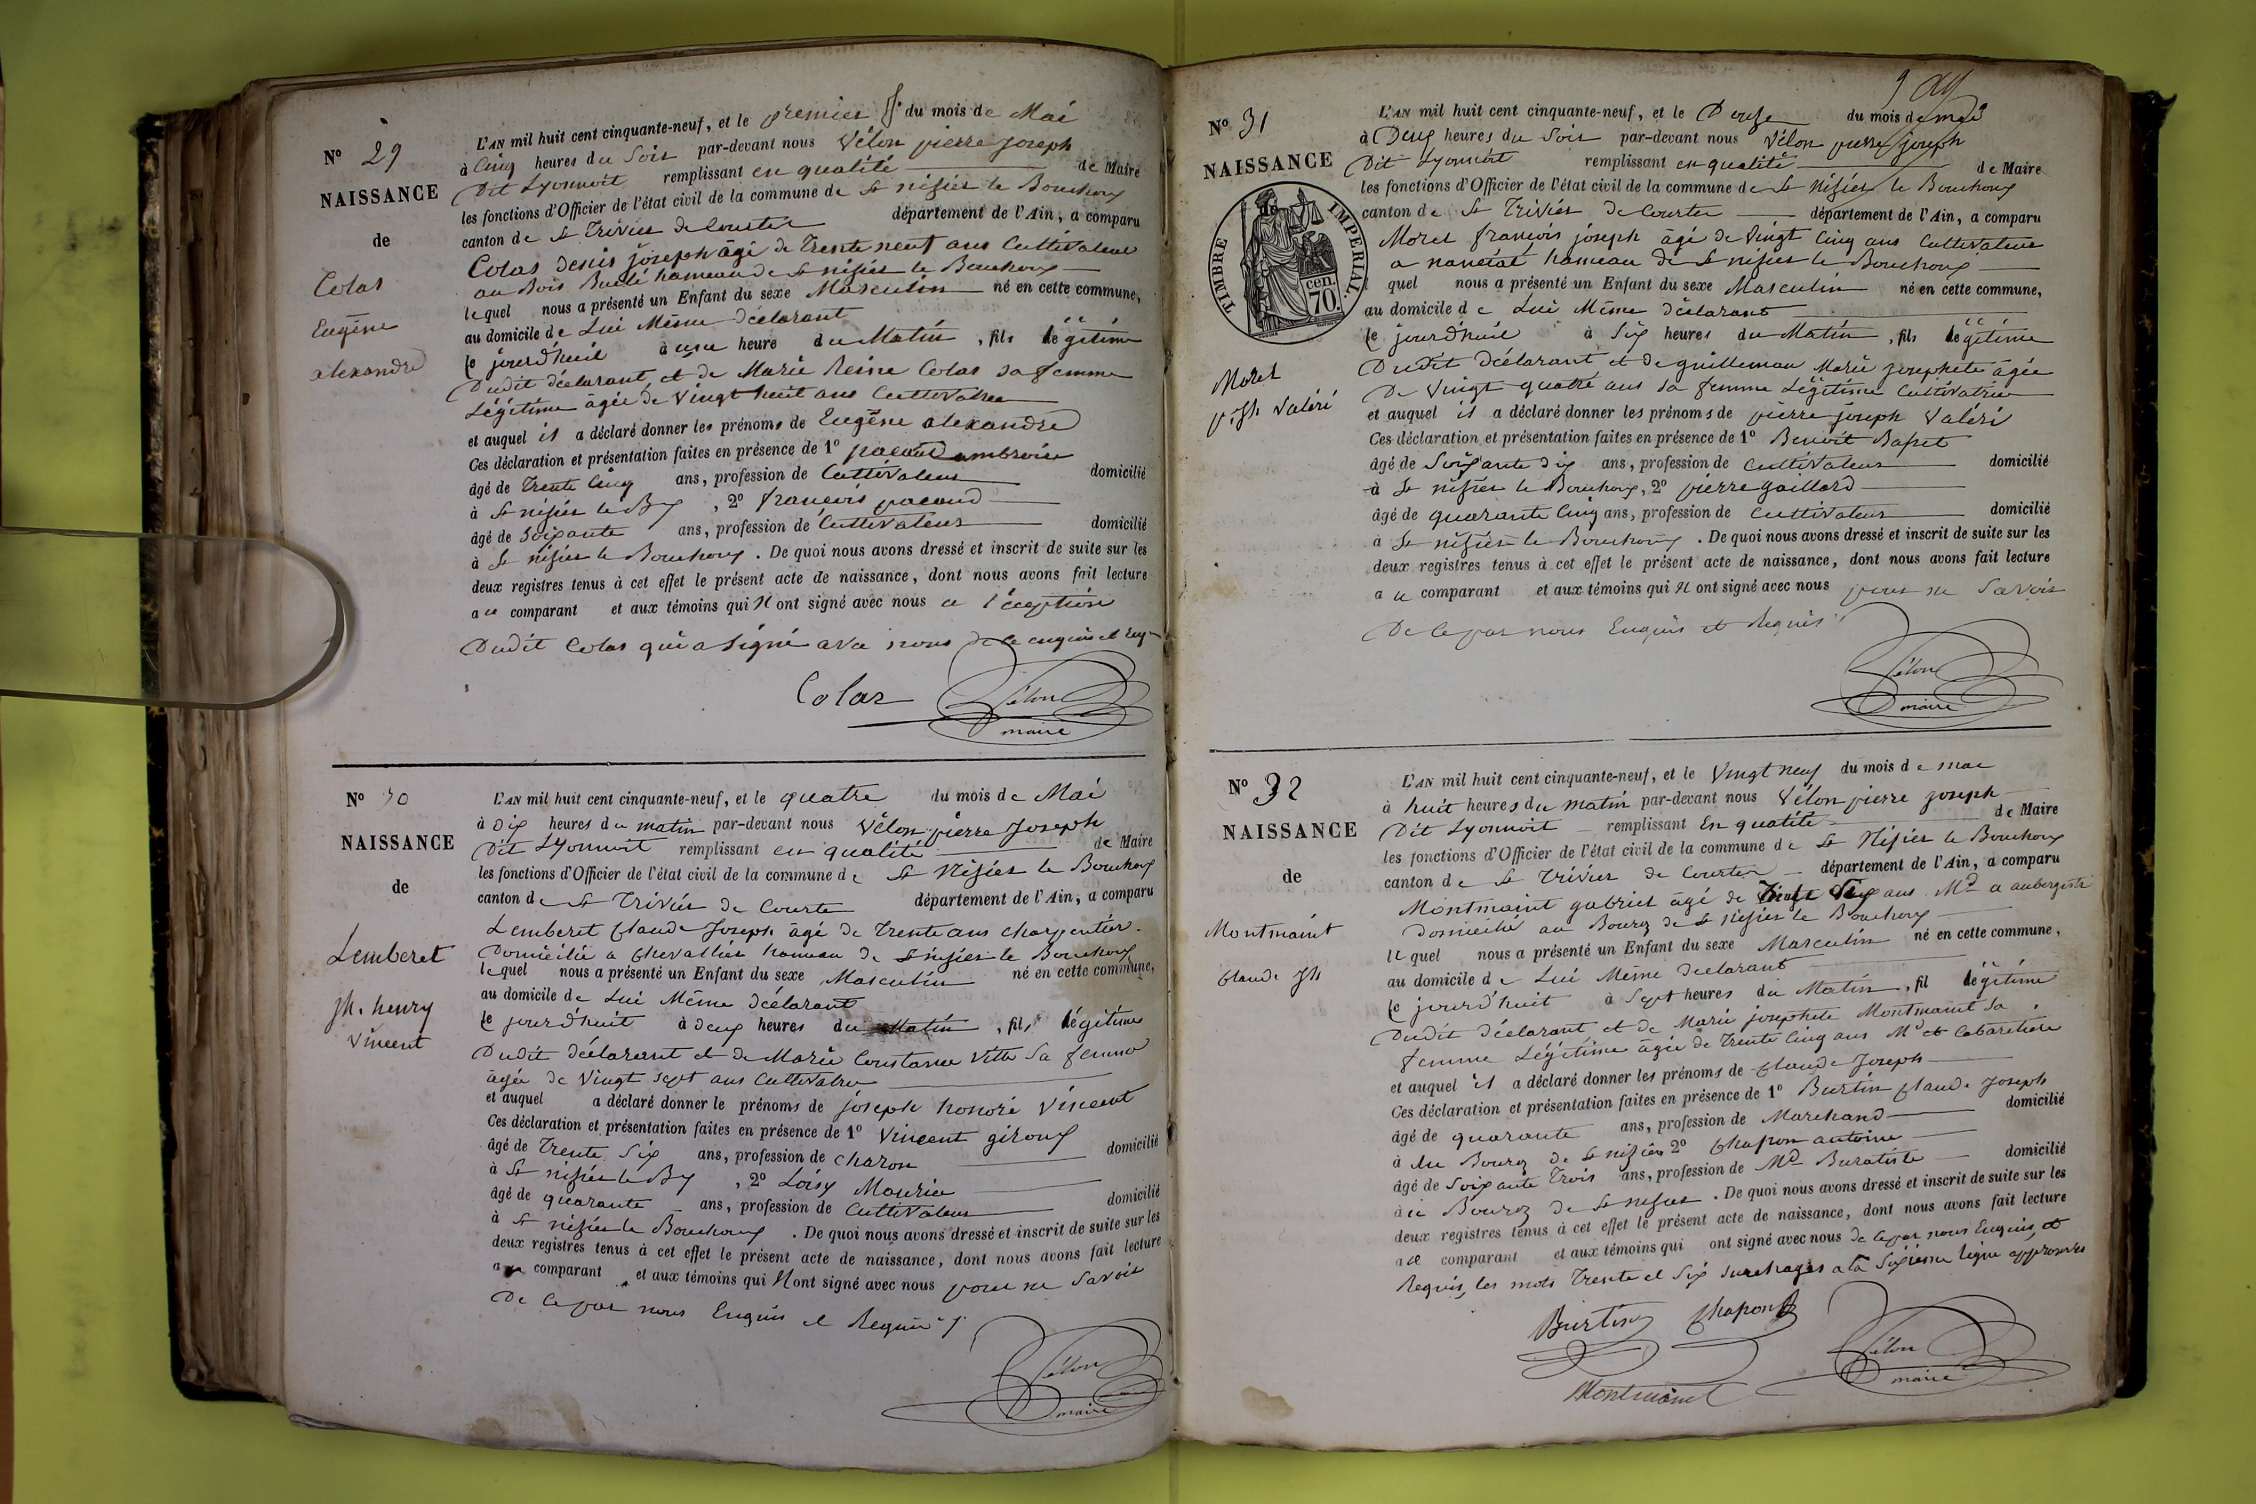 Nº 29
NAISSANCE
de
Colas
Eugène
alexandre
L'AN mil huit cent cinquante-neuf, et le premier du mois de Mai
à Cinq heures du Soir par-devant nous Vélon pierre joseph
Dit Lyonnoit remplissant en qualité de Maire
les fonctions d'Officier de l'état civil de la commune de St nisier le Bouchoux
canton de St Trivier de Courter département de l'Ain, a comparu
Colas denis joseph âgé de Trente neuf ans Cultivateur
au Bois hameau de St nisier le Bouchoux
lequel nous a présenté un Enfant du sexe Masculin né en cette commune,
au domicile de Lui Même déclarant
le jourd'huit à une heure du Matin, fils légitime
Dudit déclarant et de Marie Reine Colas sa femme
Légitime âgée de Vingt huit ans Cultivatrice
et auquel il a déclaré donner les prénoms de Eugène alexandre
Ces déclaration et présentation faites en présence de 1º pacoud ambroise
âgé de Trente Cinq ans, profession de Cultivateur domicilié
à St nisier le By, 2º francois pacoud
âgé de Soixante ans, profession de Cultivateur domicilié
à St nisier le Bouchoux. De quoi nous avons dressé et inscrit de suite sur les
deux registres tenus à cet effet le présent acte de naissance, dont nous avons fait lecture
a ce comparant et aux témoins qui N ont signé avec nous a l'éception
Dudit Colas qui a Signé avec nous de ce enquis et
Colas Vélon
maire
Nº 30
NAISSANCE
de
Lemberet
Jh. henry
Vincent
L'AN mil huit cent cinquante-neuf, et le quatre du mois de Mai
à Dix heures du matin par-devant nous Vélon pierre Joseph
Dit Lyonnoit remplissant en qualité de Maire
les fonctions d'Officier de l'état civil de la commune de St Nisier le Bouchoux
canton de St Trivier de Courte département de l'Ain, a comparu
Lemberet Claude Joseph âgé de Trente ans charpentier
Domicilié a Chevallier hameau de St nisier le Bouchoux
lequel nous a présenté un Enfant du sexe Masculin né en cette commune,
au domicile de Lui Même déclarant
le jourd'huit à deux heures du Matin, fils légitime
Dudit déclarant et de Marie Constance Sa femme
âgée de Vingt sept ans Cultivatrice
et auquel a déclaré donner le prénoms de joseph honoré Vincent
Ces déclaration et présentation faites en présence de 1º Vincent giroux
âgé de Trente Six ans, profession de charon domicilié
à St nisier le By, 2º Loisy Maurice
âgé de quarante ans, profession de Cultivateur domicilié
à St nisier le Bouchoux. De quoi nous avons dressé et inscrit de suite sur les
deux registres tenus à cet effet le présent acte de naissance, dont nous avons fait lecture
a comparant et aux témoins qui N ont signé avec nous pour ne Savoir
De ce par nous Enquis et Requis
Vélon
maire
Nº 31
NAISSANCE
TIMBRE IMPERIAL.
70. cen.
Morel
p. jh Valéri
L'AN mil huit cent cinquante-neuf, et le Douze du mois de mai
à Deux heures du Soir par-devant nous Vélon pierre joseph
Dit Lyonnoit remplissant en qualité de Maire
les fonctions d'Officier de l'état civil de la commune de St nisier le Bouchoux
canton de St Trivier de Courter département de l'Ain, a comparu
Morel francois joseph âgé de Vingt Cinq ans Cultivateur
a hameau de St nisier le Bouchoux
quel nous a présenté un Enfant du sexe Masculin né en cette commune,
au domicile de Lui Même déclarant
le jourd'huit à Six heures du Matin, fils légitime
Dudit déclarant et de guillemau Marie josephete âgée
De Vingt quatre ans sa femme Légitime Cultivatrice
et auquel il a déclaré donner les prénoms de pierre joseph Valéri
Ces déclaration et présentation faites en présence de 1º Benoit Bapet
âgé de Soixante dix ans, profession de Cultivateur domicilié
à St nisier le Bouchoux, 2º pierre gaillard
âgé de quarante Cinq ans, profession de Cultivateur domicilié
à St nisier le Bouchoux. De quoi nous avons dressé et inscrit de suite sur les
deux registres tenus à cet effet le présent acte de naissance, dont nous avons fait lecture
a ce comparant et aux témoins qui N ont signé avec nous pour ne Savoir
De ce par nous Enquis et Requis
Vélon
maire
Nº 32
NAISSANCE
de
Montmaint
Claude Jh
L'AN mil huit cent cinquante-neuf, et le Vingt neuf du mois de mai
à huit heures du matin par-devant nous Vélon pierre joseph
Dit Lyonnoit remplissant En qualité de Maire
les fonctions d'Officier de l'état civil de la commune de St Nisier le Bouchoux
canton de St Trivier de Courter département de l'Ain, a comparu
Montmaint gabriel âgé de Trente Six ans Md a aubergiste
domicilié au Bourg de St nisier le Bouchoux
lequel nous a présenté un Enfant du sexe Masculin né en cette commune,
au domicile de Lui Même déclarant
le jourd'huit à Sept heures du Matin, fil légitime
Dudit déclarant et de Marie josephete Montmaint Sa
femme Légitime âgée de Trente Cinq ans Md et Cabaretière
et auquel il a déclaré donner les prénoms de Claude Joseph
Ces déclaration et présentation faites en présence de 1º Burtin Claude Joseph
âgé de quarante ans, profession de Marchand domicilié
à du Bourg de St nisier 2º Chapon antoine
âgé de Soixante Trois ans, profession de Md Buratiste domicilié
à Bourg de St nisier. De quoi nous avons dressé et inscrit de suite sur les
deux registres tenus à cet effet le présent acte de naissance, dont nous avons fait lecture
a ce comparant et aux témoins qui ont signé avec nous de ce par nous Enquis et
Requis, les mots Trente et Six surchagés a la Sixieme ligne approuvés
Burtin Chapon Vélon
maire
Montmaint